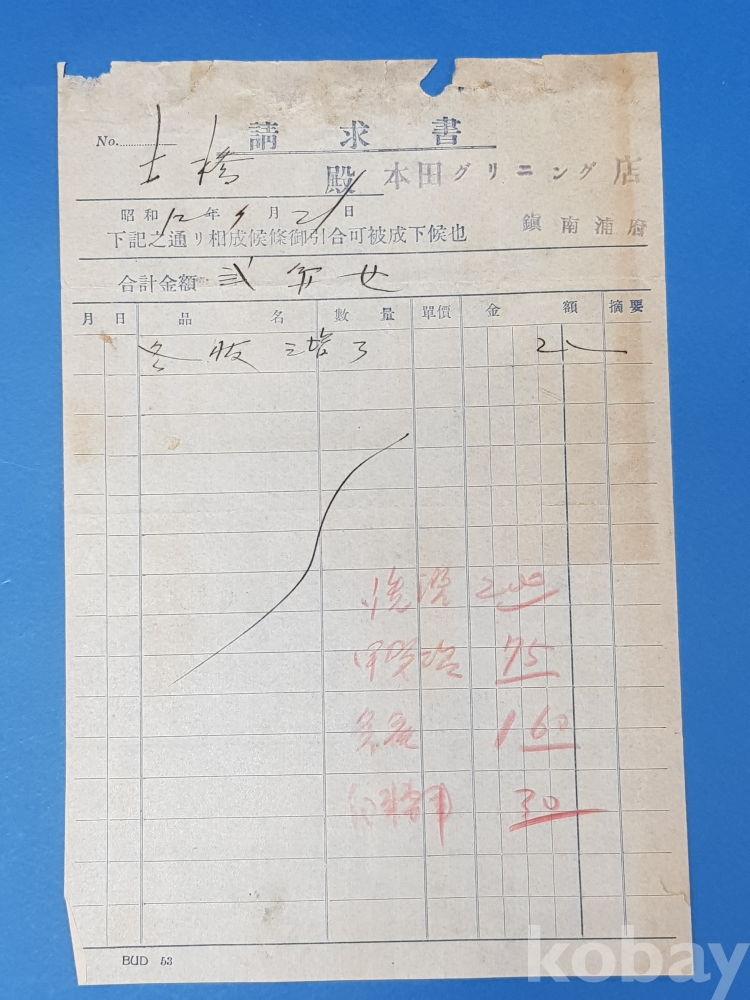 請求書
No.
土橋 殿 本田グリニング店
昭和12年 月2 日 鎭南浦府
下記之通リ相成候條御引合可被成下候也
合計金額 弐 也
月 日 品 名 數量 單價 金 額 摘要
冬 三揃 2
洗濯 200
75
160
30
BUD 53
kobay